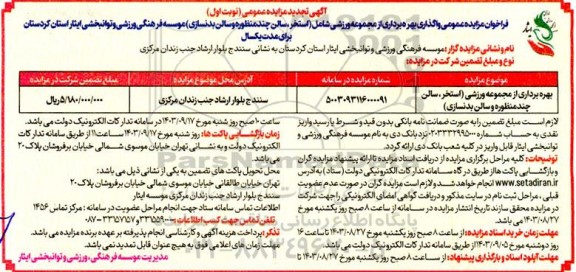 آگهی تجدید مزایده عمومی (نوبت اول)
فراخوان مزایده عمومی واگذاری بهره برداری از مجموعه ورزشی شامل (استخر، سالن چند منظوره و سالن بدنسازی) موسسه فرهنگی ورزشی و توانبخشی ایثار استان کردستان
برای مدت یکسال
نام و نشانی مزایده گزار: موسسه فرهنگی ورزشی و توانبخشی ایثار استان کردستان به نشانی سنندج بلوار ارشاد جنب زندان مرکزی
نوع و مبلغ تضمین شرکت در مزایده:
موضوع مزایده شماره مزایده در سامانه آدرس محل موضوع مزایده مبلغ تضمین شرکت در مزایده
بهره برداری از مجموعه ورزشی (استخر، سالن چند منظوره و سالن بدنسازی) ۵۰۰۳۰۹۳۱۱۶۰۰۰۰۹۱ سنندج بلوار ارشاد جنب زندان مرکزی ۵/۱۸۰/۰۰۰/۰۰۰ ریال
لازم است مبلغ تضمین را به صورت ضمانت نامه بانکی بدون قید و شرط یا رسید واریز
نقدی به حساب شماره نزد بانک دی به نام موسسه فرهنگی ورزشی و
توانبخشی ایثار قابل واریز در کلیه شعب بانک دی ارائه گردد.
توضیحات: کلیه مراحل برگزاری مزایده از دریافت اسناد مزایده تا ارائه پیشنهاد مزایده گران
و بازگشایی پاکت ها از طریق درگاه سامانه تدارکات الکترونیکی دولت (ستاد) به آدرس
www.setadiran.ir انجام خواهد شد و لازم است مزایده گران در صورت عدم عضویت
قبلی، مراحل ثبت نام در سایت مذکور و دریافت گواهی امضای الکترونیکی را جهت شرکت
در مزایده محقق سازند. تاریخ انتشار مزایده در سامانه از ساعت ۸ صبح روز یکشنبه مورخ
۱۴۰۳/۰۸/۲۷ می باشد.
مهلت زمان خرید اسناد مزایده: از ساعت ۸ صبح روز یکشنبه مورخ ۱۴۰۳/۰۸/۲۷ تا ساعت ۱۶
روز دوشنبه مورخ ۱۴۰۳/۰۹/۰۵ از طریق سامانه تدارکات الکترونیک دولت می باشد.
مهلت آپلود اسناد و بارگذاری پیشنهاد: از ساعت ۸ صبح روز یکشنبه مورخ ۱۴۰۳/۰۸/۲۷ تا
ساعت ۱۰ صبح روز شنبه مورخ ۱۴۰۳/۰۹/۱۷ در سامانه تدارکات الکترونیک دولت می باشد.
زمان بازگشایی پاکت ها: روز شنبه مورخ ۱۴۰۳/۰۹/۱۷ ساعت ۱۱ از طریق سامانه تدارکات
الکترونیک دولت و به نشانی تهران خیابان طالقانی خیابان موسوی شمالی برفروشان پلاک ۲۰
می باشد.
محل تحویل پاکت های تضمین به یکی از نشانی ذیل می باشد:
تهران خیابان طالقانی خیابان موسوی شمالی برفروشان پلاک ۲۰
سنندج بلوار ارشاد جنب زندان مرکزی
اطلاعات تماس سامانه ستاد جهت انجام مراحل عضویت در سامانه: مرکز تماس ۱۴۵۶
تذکر: پرداخت هزینه آگهی و کارشناسی انجام پذیرفته بر عهده برنده مزایده می باشد.
مهلت زمان های اعلامی فوق به هیچ عنوان قابل تمدید نمی باشد.
مدیریت موسسه فرهنگی، ورزشی و توانبخشی ایثار